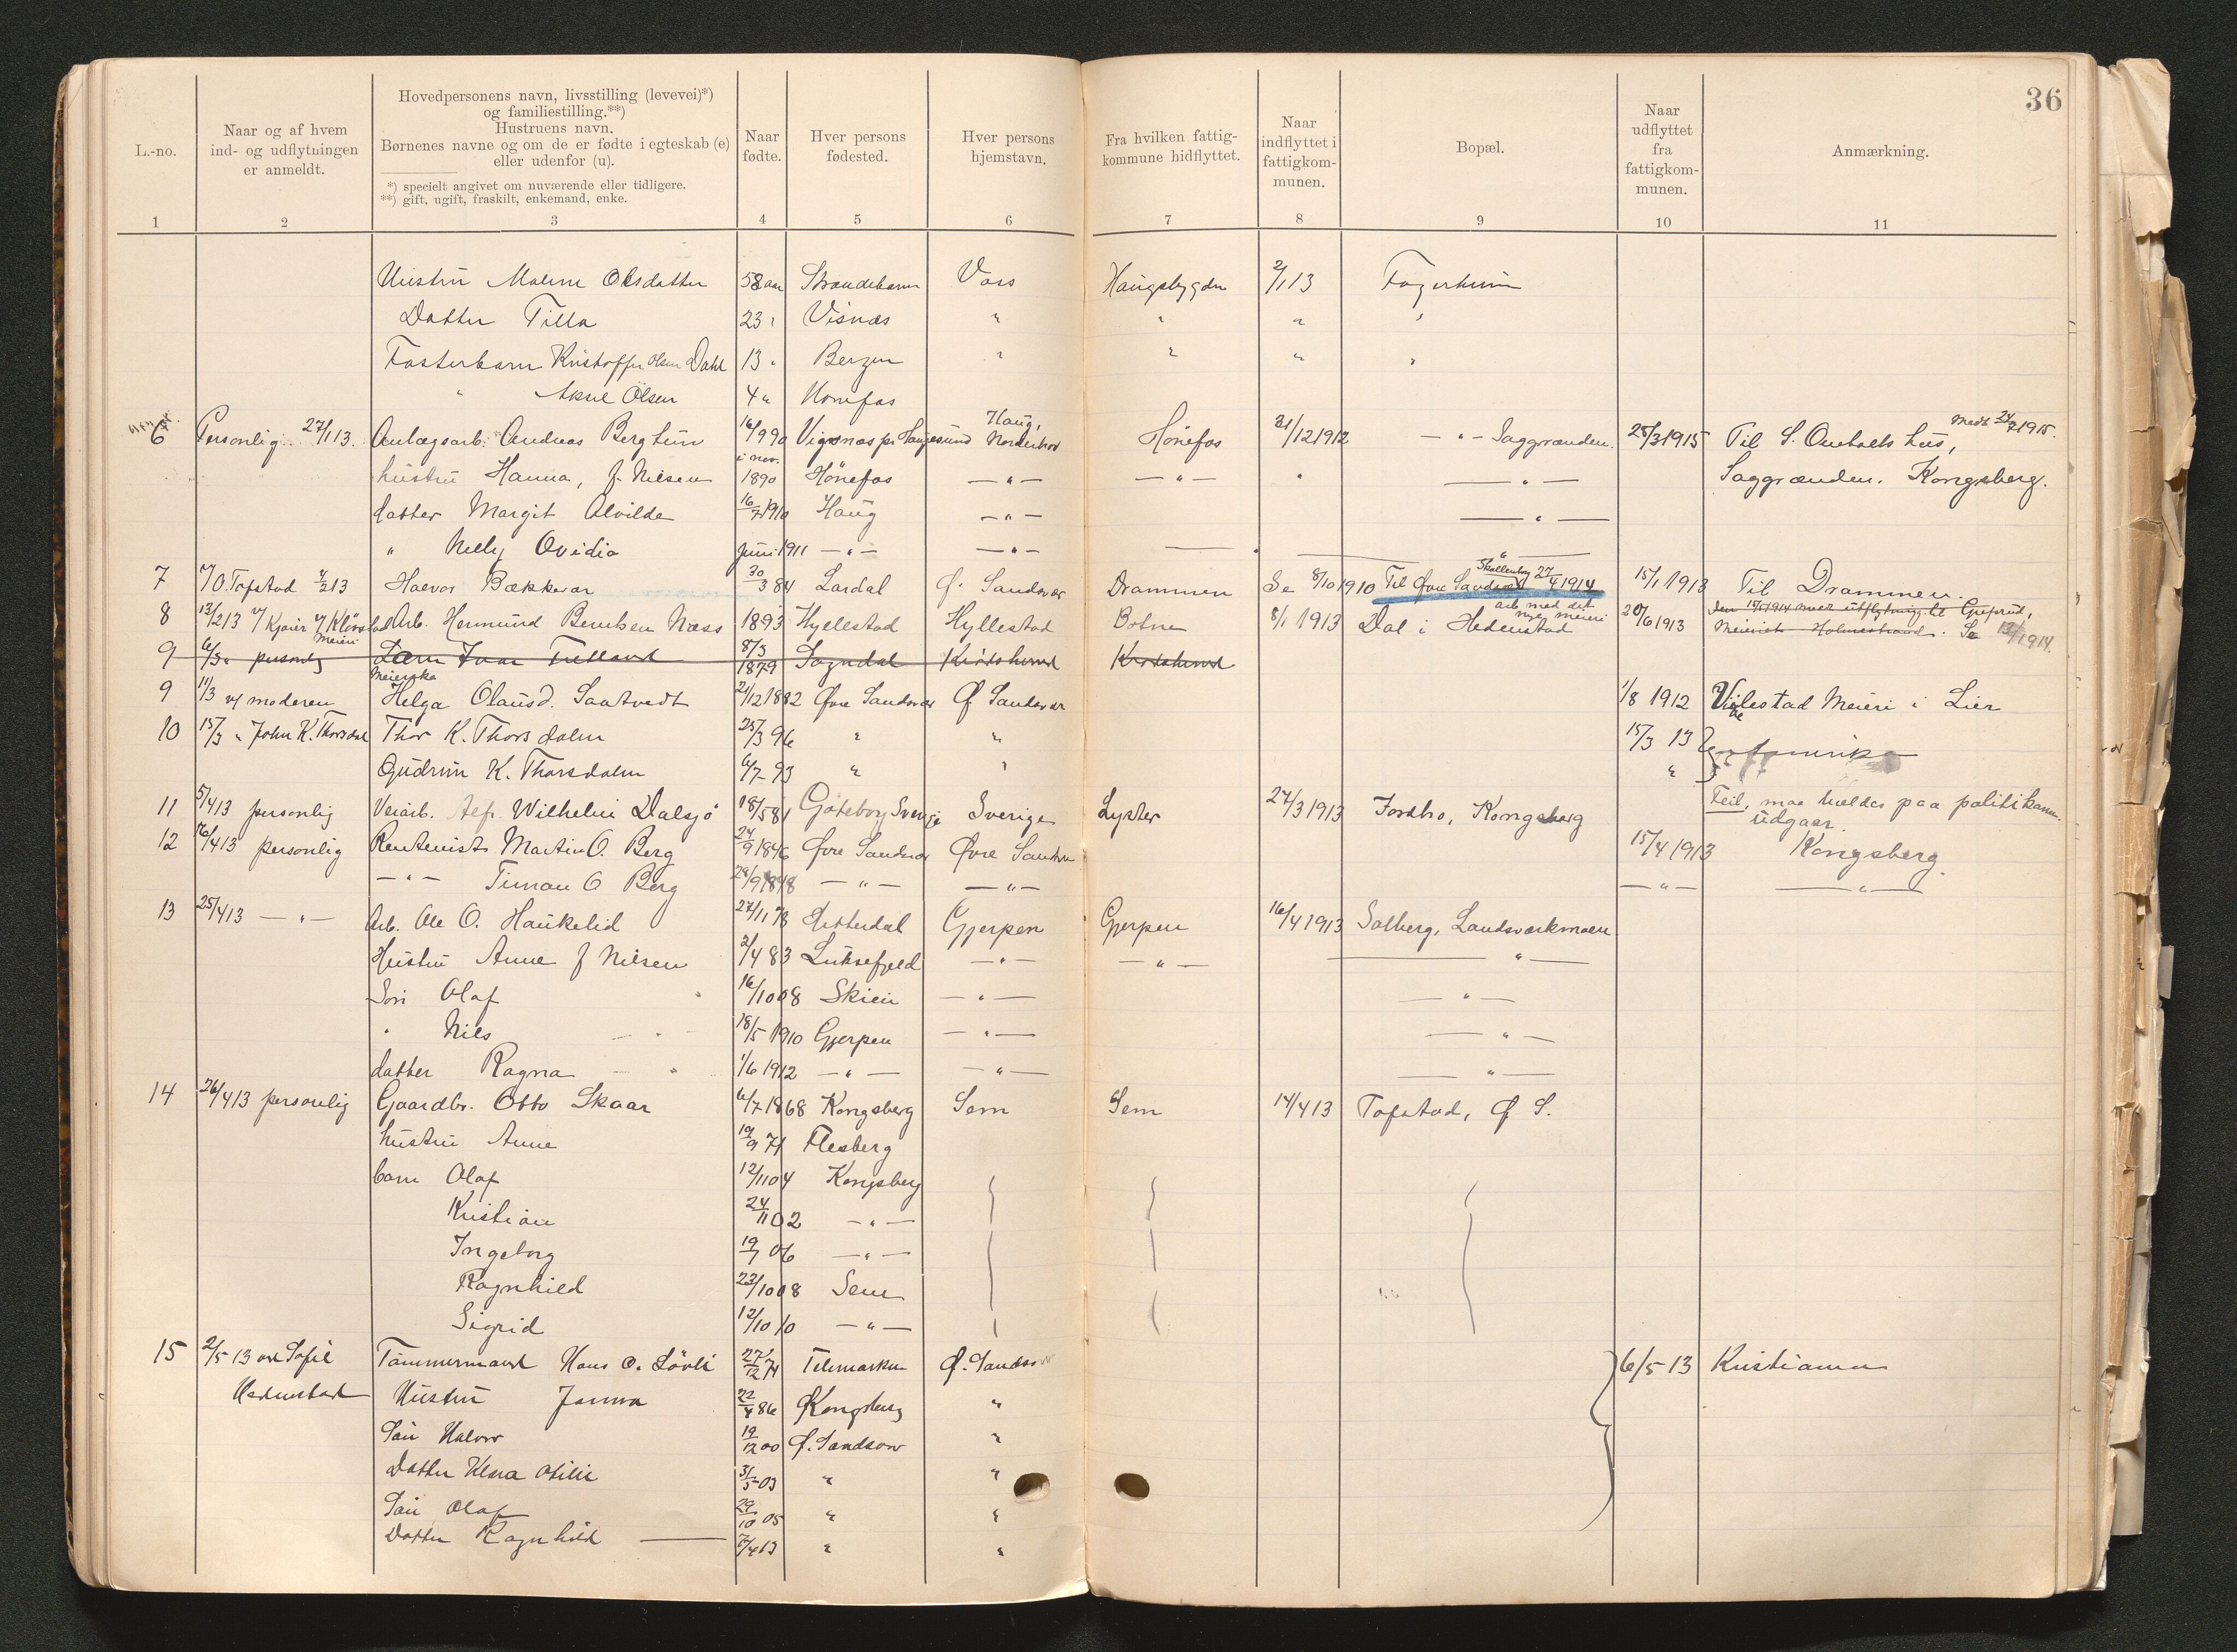 36
L.-no.
Naar og af hvem
ind- og udflytningen
er anmeldt.
Hovedpersonens navn, livsstilling (levevei)*)
og familiestilling.**)
Hustruens navn.
Børnenes navne og om de er fødte i egteskab (e)
eller udenfor (u).
*) specielt angivet om nuværende eller tidligere.
**) gift, ugift, fraskilt, enkemand, enke.
Naar
fødte.
Hver persons
fødested.
Hver persons
hjemstavn.
Fra hvilken fattig-
kommune hidflyttet.
Naar
indflyttet i
fattigkom-
munen.
Bopæl.
Naar
udflyttet
fra
fattigkom-
munen.
Anmærkning.
1 2 3 4 5 6 7 8 9 10 11
Hustru Malene Olsdatter 58 aar Strandebarm Voss Haugsbygden 2/1 13 Fagerheim
Datter Tilla 23 " Visnæs " " " "
Fosterbarn Kristoffer Olsen Dahl 13 " Bergen " " " "
" Aksel Olsen 4 " Hønefos
6 Personlig 27/1 13. Anlægsarb. Andreas Berghun 16/9 90 Vigsnæs pr. Haugesund Haug, Norderhov Hönefos 21/12 1912 — " — Saggrænden. 25/3 1915 Til S. Ombolts hus, Medt 24/7 1915.
hustru Hanna, f. Nilsen i nov. 1890 Hönefos — " — — " — " — " — Saggrænden. Kongsberg.
datter Margit Alvilde 16/7 1910 Haug — " — — " —
" Nelly Ovidia juni 1911 — " — — " — — " —
7 v/ O. Tofstad 4/2 13 Halvor Bækkevar 30/3 84 Lardal Ø. Sandsvær Drammen Se 8/10 1910 Til Øvre Sandsvær Skollenborg 27/4 1914 15/1 1913 Til Drammen.
8 13/2 13 v/ Kjøier v/ Klövstad Meieri Arb. Hermund Berntsen Næss 1893 Hyllestad Hyllestad Botne 8/1 1913 Dal i Hedenstad arb. med det nye meieri 20/6 1913 Den 15/1 1914 med utflytning til
Meierist Holmestrand. Se 13/1 1914.
9 6/3 " personlig Lærer Ivar 8/3 1879 Sogndal Krødsherred Krødsherred
9 11/3 v/ moderen Meierske Helga Olausd. Saatvedt 21/12 1882 Øvre Sandsvær Ø Sandsvær 1/8 1912 Vilestad Meieri i Lier
10 15/3 " John K. Thorsdal Thor K. Thorsdalen 25/3 96 " " 15/3 13 Amerika
Gudrun K. Thorsdalen 6/7 93 " " "
11 5/4 13 personlig Veiarb. Alf. Wilhelm Dalsjö 18/5 81 Göteborg Sverige Sverige Lyster 27/3 1913 Jondbro, Kongsberg Feil, maa meldes paa politikam.
udgaar.
12 16/4 13 personlig Rentenist Martin O. Berg 24/9 1846 Øvre Sandsvær Øvre Sandsvær 15/4 1913 Kongsberg.
— " — Timan O Berg 28/9 1848 — " — — " — — " — — " —
13 25/4 13 — " — Arb. Ole O. Haukelid 27/11 78 Hitterdal Gjerpen Gjerpen 16/4 1913 Solberg, Landsværkmoen
Hustru Anne f Nilsen 2/4 83 Luksefjeld — " — — " — — " —
Sön Olaf " 16/10 08 Skien — " — — " —
" Nils " 18/5 1910 Gjerpen — " — — " —
datter Ragna " 1/6 1912 — " — — " — — " —
14 26/4 13 personlig Gaardbr. Otto Skaar 6/7 1868 Kongsberg Sem Sem 14/4 13 Tofstad, Ø S.
hustru Anne 19/9 71 Flesberg
barn Olaf 12/11 04 Kongsberg
Kristian 24/11 02 — " —
Ingeborg 19/7 06 — " —
Ragnhild 23/10 08 Sem
Sigrid 12/10 10 — " —
15 2/5 13 ved Sofie Tömmermand Hans O. Lövli 27/12 74 Telemarken Ø. Sandsvær 6/5 13 Kristiania
Hedenstad Hustru Janna 22/4 86 Kongsberg "
Sön Halvor 19/12 00 Ø. Sandsvær "
Datter Klara Otilie 31/5 03 " "
Sön Olaf 29/10 05 " "
Datter Ragnhild — 7/4 13 " "